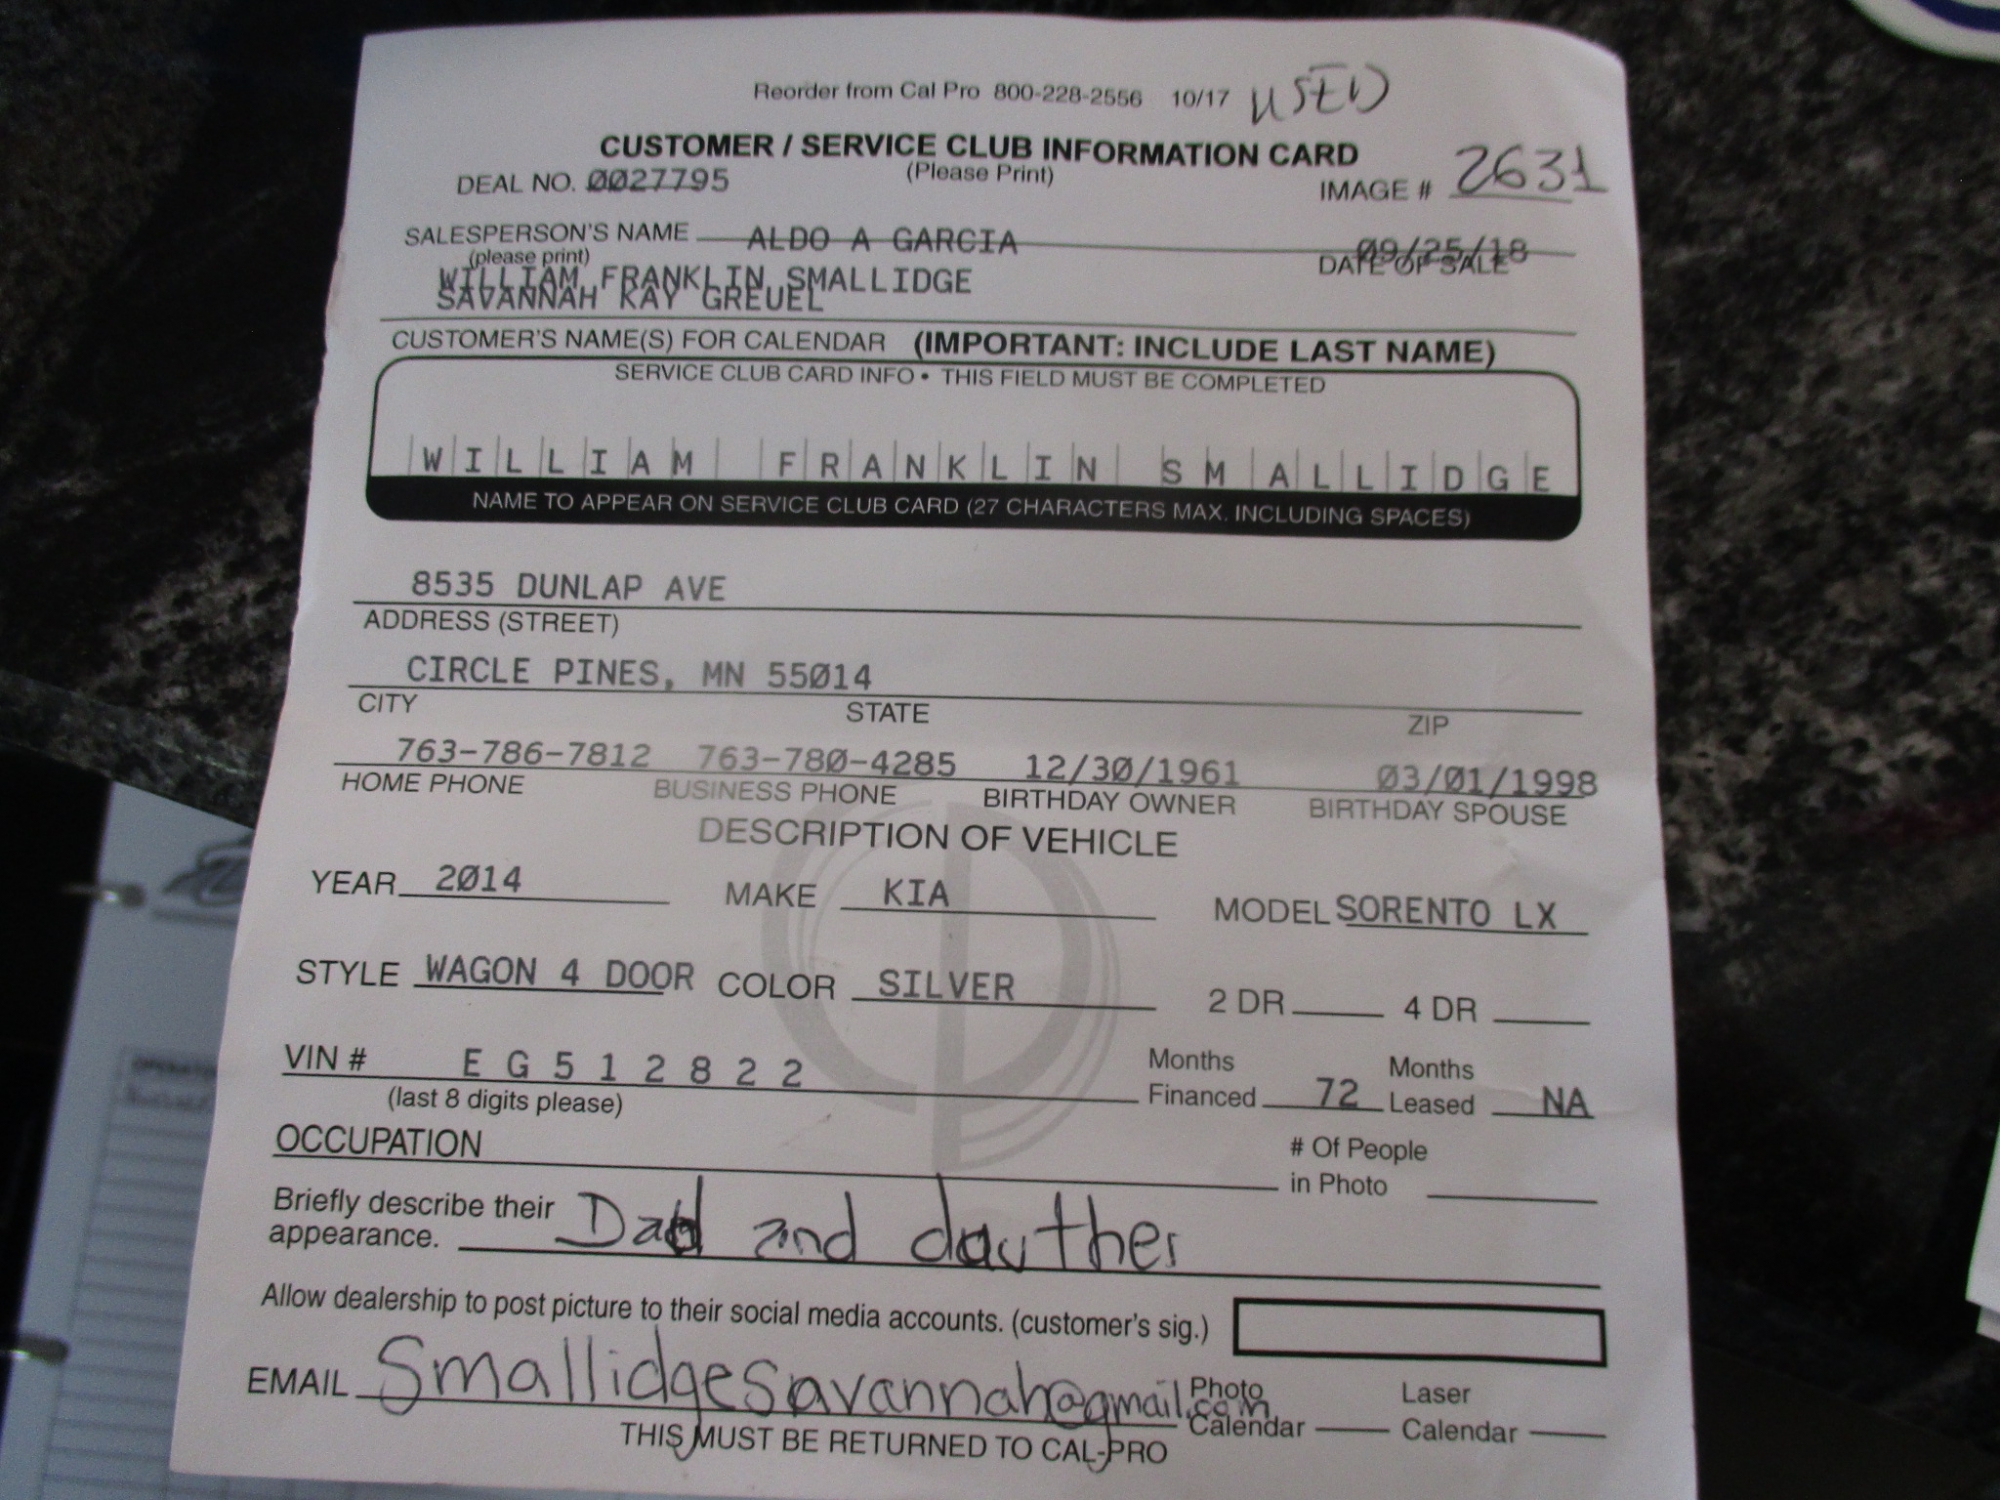 Reorder from Cal Pro 800-228-2556 10/17 USED
CUSTOMER / SERVICE CLUB INFORMATION CARD
(Please Print)
DEAL NO. 0027795 IMAGE # 2631
SALESPERSON'S NAME ALDO A GARCIA 09/25/18
(please print) DATE OF SALE
WILLIAM FRANKLIN SMALLIDGE
SAVANNAH KAY GREUEL
CUSTOMER'S NAME(S) FOR CALENDAR (IMPORTANT: INCLUDE LAST NAME)
SERVICE CLUB CARD INFO • THIS FIELD MUST BE COMPLETED
WILLIAM FRANKLIN SMALLIDGE
NAME TO APPEAR ON SERVICE CLUB CARD (27 CHARACTERS MAX. INCLUDING SPACES)
8535 DUNLAP AVE
ADDRESS (STREET)
CIRCLE PINES, MN 55014
CITY STATE ZIP
763-786-7812 763-780-4285 12/30/1961 03/01/1998
HOME PHONE BUSINESS PHONE BIRTHDAY OWNER BIRTHDAY SPOUSE
DESCRIPTION OF VEHICLE
YEAR 2014 MAKE KIA MODEL SORENTO LX
STYLE WAGON 4 DOOR COLOR SILVER 2 DR 4 DR
VIN # E G 5 1 2 8 2 2 Months Financed 72 Months Leased NA
(last 8 digits please)
OCCUPATION # Of People in Photo
Briefly describe their appearance. Dad and dauther
Allow dealership to post picture to their social media accounts. (customer's sig.)
EMAIL Smallidgesavannah@gmail.com Photo Calendar Laser Calendar
THIS MUST BE RETURNED TO CAL-PRO